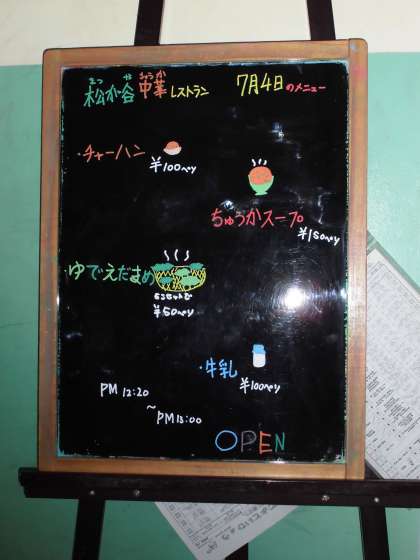 まつ が や ちゅうか
松が谷 中華 レストラン 7月4日のメニュー
・チャーハン
¥100ペソ
ちゅうかスープ
¥150ペソ
・ゆでえだまめ
¥50ペソ
・牛乳
¥100ペソ
PM 12:20
~
PM 13:00
OPEN